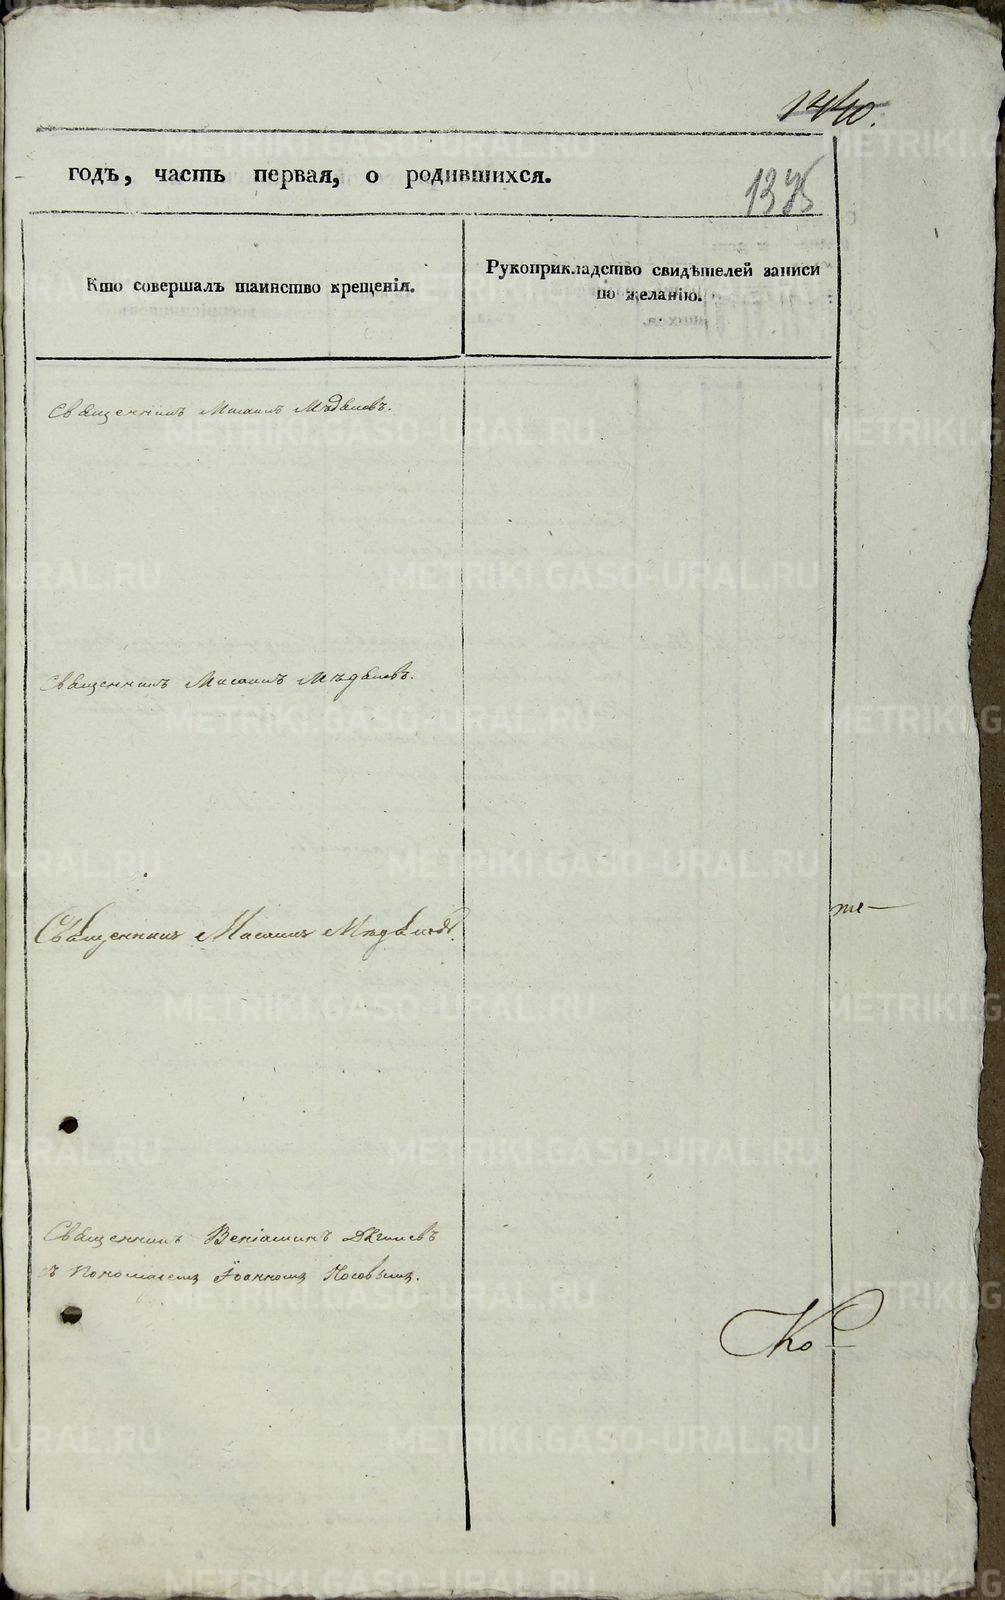 1440.
годъ, часть первая, о родившихся.
1375
Кто совершалъ таинство крещенія.
Рукоприкладство свидѣтелей записи
по желанію.
Священникъ Михаилъ
Священникъ Михаилъ
Священникъ Михаилъ
те—
Священникъ Веніаминъ
съ Пономаремъ Іоанномъ Носовымъ.
Ко
METRIKI.GASO-URAL.RU